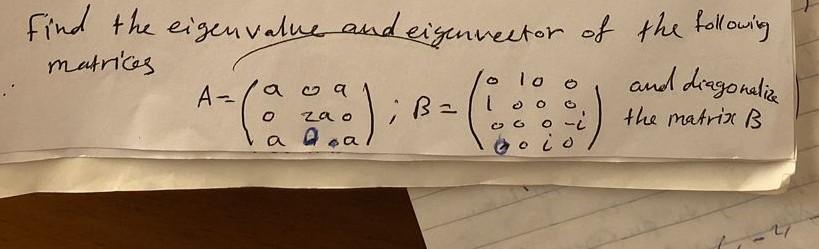 Find the eigenvalue and eigenvector of the following
matrices
A = ( a 0 a ; B = ( 0 1 0 0 and diagonalize
0 2a 0 1 0 0 0 the matrix B
a 0 a ) 0 0 0 -i
0 0 i 0 )